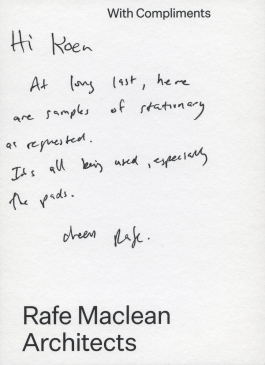 With Compliments
Hi Koen
At long last, here
are samples of stationary
as requested.
It's all being used, especially
the pads.
cheers Rafe.
Rafe Maclean
Architects